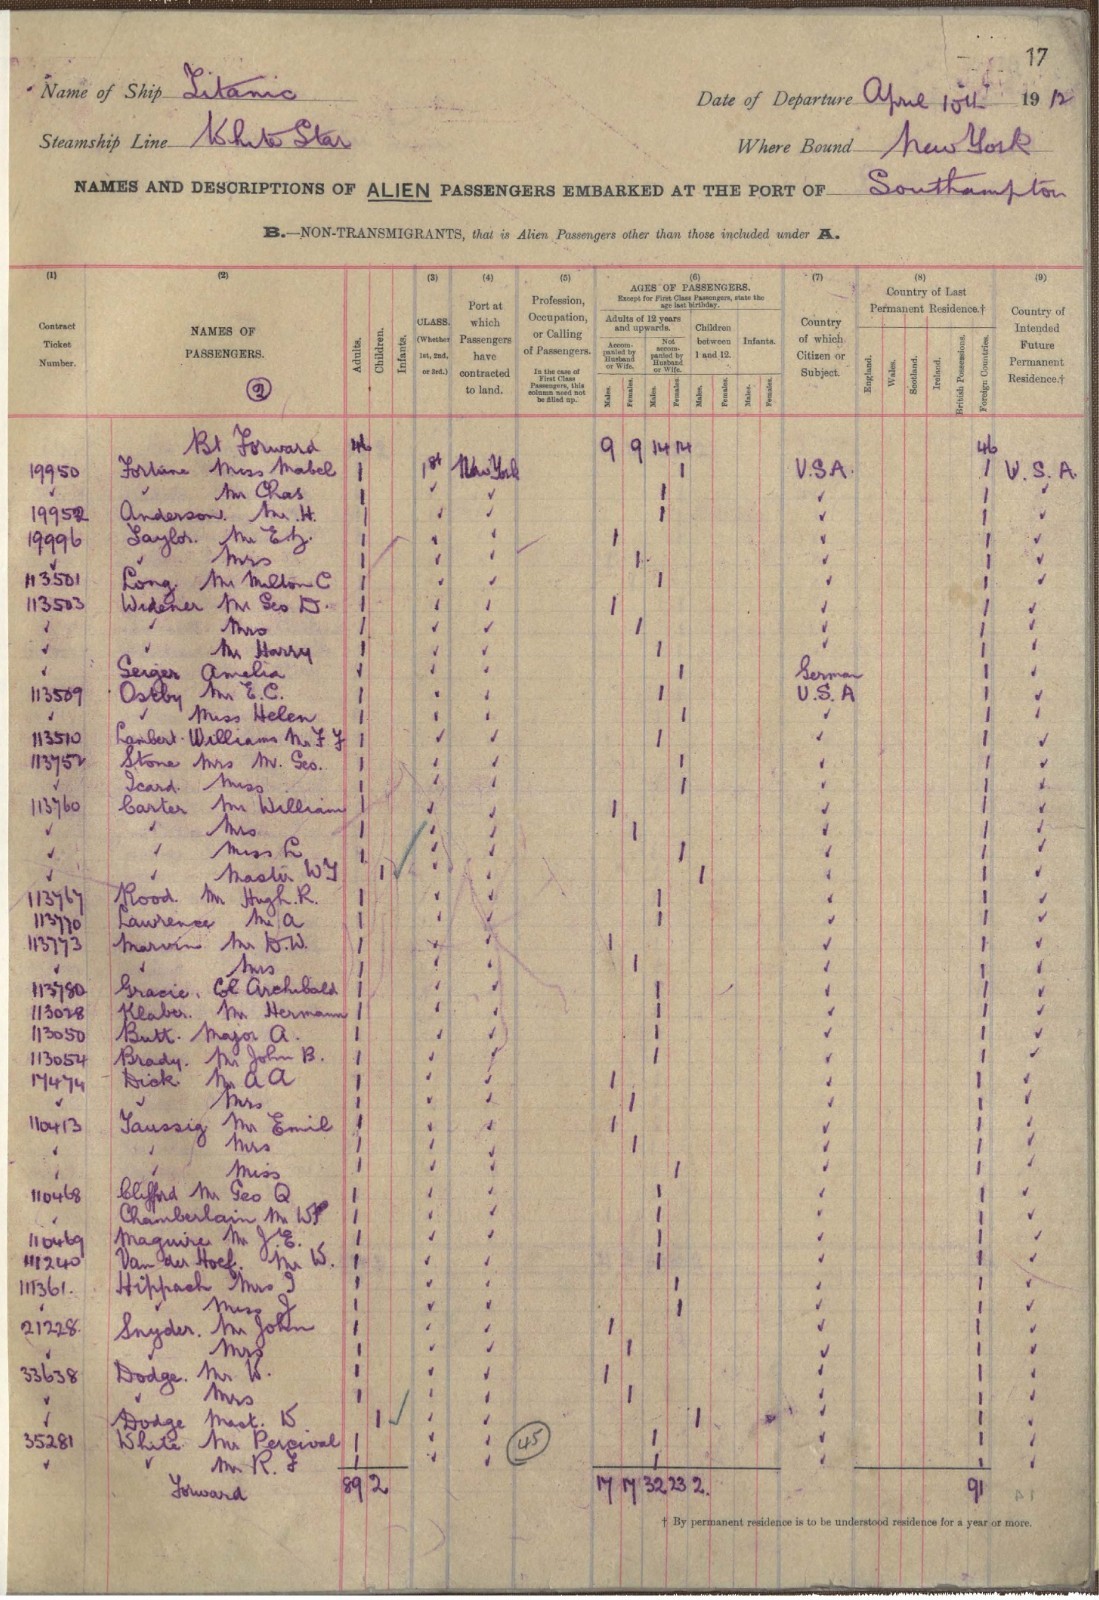 17
Name of Ship Titanic
Date of Departure April 10th 1912
Steamship Line White Star
Where Bound New York
NAMES AND DESCRIPTIONS OF ALIEN PASSENGERS EMBARKED AT THE PORT OF Southampton
B.—NON-TRANSMIGRANTS, that is Alien Passengers other than those included under A.
(1) Contract Ticket Number.
(2) NAMES OF PASSENGERS.
2
Adults.
Children.
Infants.
(3) CLASS. (Whether 1st, 2nd, or 3rd.)
(4) Port at which Passengers have contracted to land.
(5) Profession, Occupation, or Calling of Passengers.
In the case of First Class Passengers, this column need not be filled up.
(6) AGES OF PASSENGERS.
Except for First Class Passengers, state the age last birthday.
Adults of 12 years and upwards.
Accompanied by Husband or Wife.
Not accompanied by Husband or Wife.
Children between 1 and 12.
Infants.
Males. Females. Males. Females. Males. Females. Males. Females.
(7) Country of which Citizen or Subject.
(8) Country of Last Permanent Residence.†
England. Wales. Scotland. Ireland. British Possessions. Foreign Countries.
(9) Country of Intended Future Permanent Residence.†
Bt Forward 46 9 9 14 14 46
19950 Fortune Miss Mabel 1 1st New York 1 U.S.A. 1 U.S.A.
✓ ✓ Mr Chas 1 ✓ ✓ 1 ✓ 1 ✓
19952 Anderson. Mr. H. 1 ✓ ✓ 1 ✓ 1 ✓
19996 Taylor. Mr E.Z. 1 ✓ ✓ 1 ✓ 1 ✓
✓ ✓ Mrs 1 ✓ ✓ 1 ✓ 1 ✓
113501 Long. Mr Milton C 1 ✓ ✓ 1 ✓ 1 ✓
113503 Widener Mr Geo D. 1 ✓ ✓ 1 ✓ 1 ✓
✓ ✓ Mrs 1 ✓ ✓ 1 ✓ 1 ✓
✓ ✓ Mr Harry 1 ✓ ✓ 1 ✓ 1 ✓
Geiger Amelia 1 ✓ ✓ 1 German 1 ✓
113509 Ostby Mr E.C. 1 ✓ ✓ 1 U.S.A 1 ✓
✓ ✓ Miss Helen 1 ✓ ✓ 1 ✓ 1 ✓
113510 Lambert-Williams Mr F F 1 ✓ ✓ 1 ✓ 1 ✓
113752 Stone Mrs M. Geo. 1 ✓ ✓ 1 ✓ 1 ✓
✓ Icard. Miss 1 ✓ ✓ 1 ✓ 1 ✓
113760 Carter Mr William 1 ✓ ✓ 1 ✓ 1 ✓
✓ ✓ Mrs 1 ✓ ✓ 1 ✓ 1 ✓
✓ ✓ Miss L 1 ✓ ✓ 1 ✓ 1 ✓
✓ ✓ Master W T 1 ✓ ✓ ✓ 1 ✓ 1 ✓
113767 Rood. Mr Hugh. R. 1 ✓ ✓ 1 ✓ 1 ✓
113770 Lawrence Mr A 1 ✓ ✓ 1 ✓ 1 ✓
113773 Marvin Mr D.W. 1 ✓ ✓ 1 ✓ 1 ✓
✓ ✓ Mrs 1 ✓ ✓ 1 ✓ 1 ✓
113780 Gracie. Col Archibald 1 ✓ ✓ 1 ✓ 1 ✓
113028 Klaber. Mr Hermann 1 ✓ ✓ 1 ✓ 1 ✓
113050 Butt. Major A. 1 ✓ ✓ 1 ✓ 1 ✓
113054 Brady. Mr John B. 1 ✓ ✓ 1 ✓ 1 ✓
17474 Dick Mr A A 1 ✓ ✓ 1 ✓ 1 ✓
✓ ✓ Mrs 1 ✓ ✓ 1 ✓ 1 ✓
110413 Taussig Mr Emil 1 ✓ ✓ 1 ✓ 1 ✓
✓ ✓ Mrs 1 ✓ ✓ 1 ✓ 1 ✓
✓ ✓ Miss 1 ✓ ✓ 1 ✓ 1 ✓
110468 Clifford Mr Geo Q 1 ✓ ✓ 1 ✓ 1 ✓
✓ Chamberlain Mr 1 ✓ ✓ 1 ✓ 1
110469 Maguire Mr J E. 1 ✓ ✓ 1 ✓ 1 ✓
111240 Van der Hoef. Mr W. 1 ✓ 1 ✓ 1 ✓
111361. Hippach Mrs I 1 ✓ ✓ 1 ✓ 1 ✓
✓ ✓ Miss J 1 ✓ ✓ 1 ✓ 1 ✓
21228 Snyder. Mr John 1 ✓ ✓ 1 ✓ 1 ✓
✓ ✓ Mrs 1 ✓ ✓ 1 ✓ 1 ✓
33638 Dodge. Mr W. 1 ✓ ✓ 1 ✓ 1 ✓
✓ ✓ Mrs 1 ✓ ✓ 1 ✓ 1 ✓
✓ Dodge Mast. W 1 ✓ ✓ ✓ 1 ✓ 1 ✓
35281 White Mr Percival 1 ✓ ✓ 1 ✓ 1 ✓
✓ ✓ Mr R. F 1 ✓ ✓ 1 ✓ 1 ✓
45
Forward 89 2 17 17 32 23 2. 91
† By permanent residence is to be understood residence for a year or more.